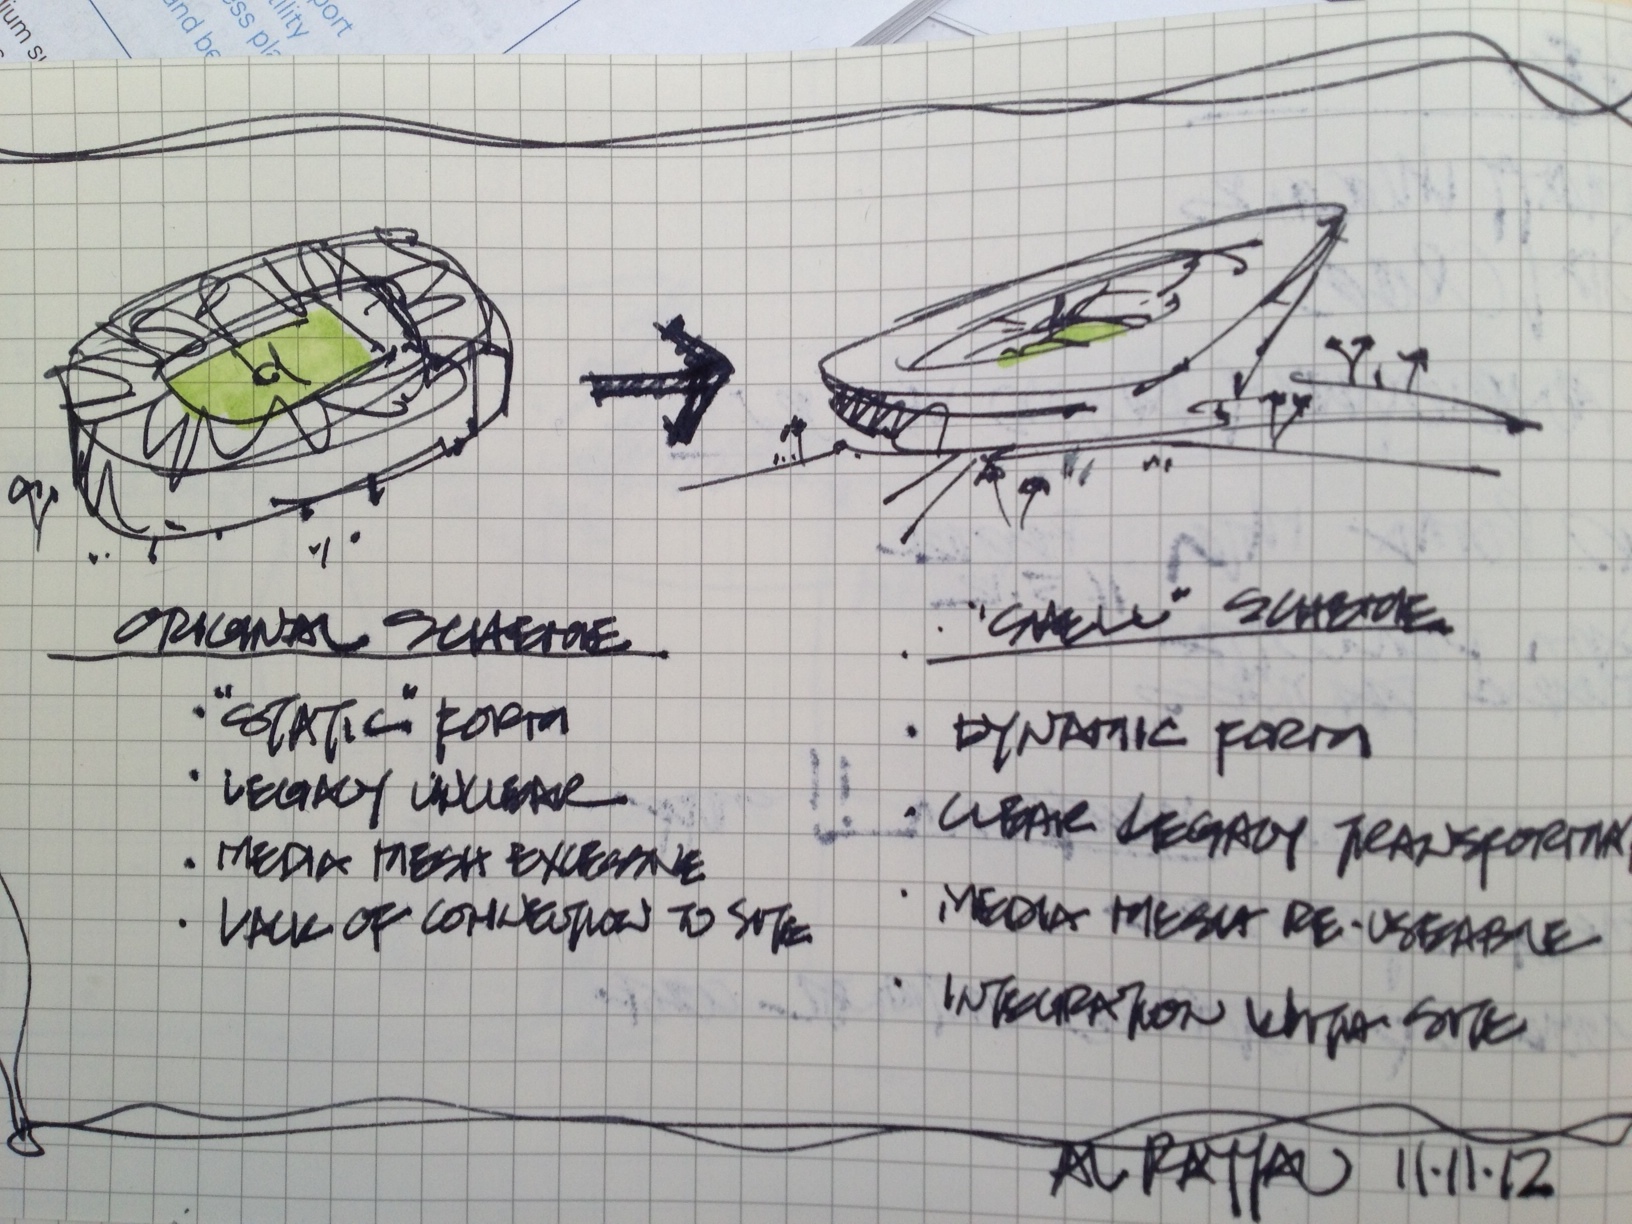 port
tility
ess pla
and be
ium s
ORIGINAL SCHEME
"STATIC" FORM
LEGACY UNCLEAR
MEDIA MESH EXCESSIVE
LACK OF CONNECTION TO SITE
"SHELL" SCHEME
DYNAMIC FORM
CLEAR LEGACY TRANSFORMA
MEDIA MESH RE-USEABLE
INTEGRATION WITH SITE
AL RAYYAN 11.11.12